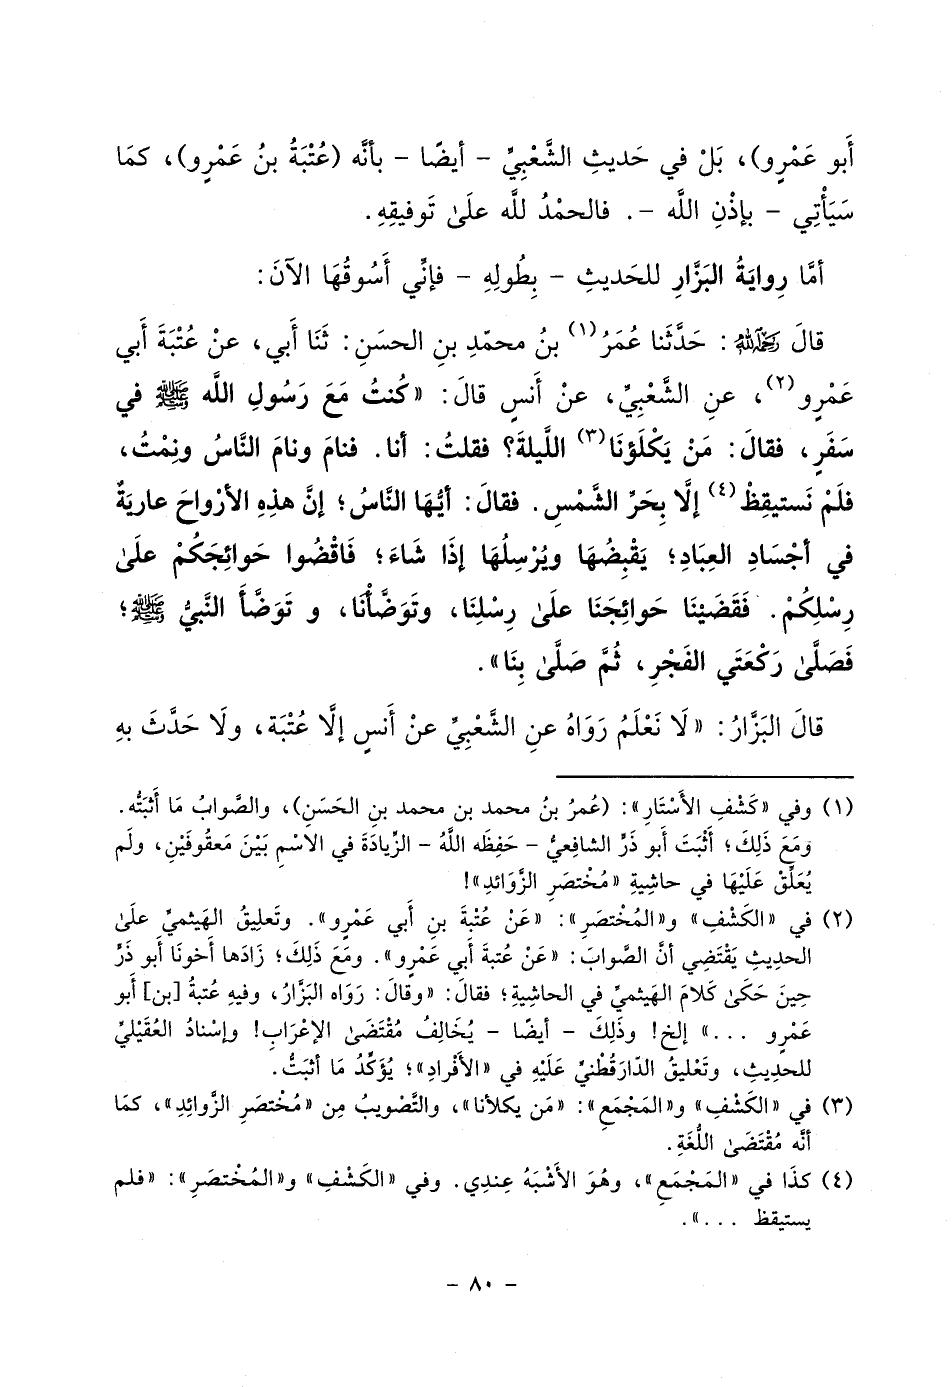 أَبو عَمْرٍو)، بَلْ في حَديثِ الشَّعْبِيِّ - أيضًا - بأنَّه (عُتْبَةُ بنُ عَمْرٍو)، كمَا
سَيَأْتِي - بإذْنِ اللَّه -. فالحمْدُ للَّه علَىٰ تَوفيقِهِ.
أمَّا رِوايَةُ البَزَّارِ للحَديثِ - بِطُولِهِ - فإنِّي أَسُوقُهَا الآنَ:
قالَ رَحِمَهُ اللَّهُ: حَدَّثَنا عُمَرُ(١) بنُ محمّدِ بنِ الحسَنِ: ثَنَا أَبي، عنْ عُتْبَةَ أَبي
عَمْرٍو(٢)، عنِ الشَّعْبِيِّ، عنْ أَنسٍ قالَ: «كُنتُ مَعَ رَسُولِ اللَّه ﷺ في
سَفَرٍ، فقالَ: مَنْ يَكْلَؤنَا(٣) اللَّيلَةَ؟ فقلتُ: أنا. فنامَ ونامَ النَّاسُ ونِمْتُ،
فلَمْ نَستيقِظْ(٤) إلَّا بِحَرِّ الشَّمْسِ. فقالَ: أيُّهَا النَّاسُ؛ إنَّ هذِهِ الأرْواحَ عاريَةٌ
في أجْسَادِ العِبَادِ؛ يَقْبِضُهَا ويُرْسِلُهَا إذَا شَاءَ؛ فَاقْضُوا حَوائِجَكُمْ علَىٰ
رِسْلِكُمْ. فَقَضَيْنَا حَوائِجَنَا علَىٰ رِسْلِنَا، وتَوَضَّأْنَا، و تَوَضَّأَ النَّبيُّ ﷺ؛
فَصَلَّىٰ رَكْعَتَي الفَجْرِ، ثُمَّ صَلَّىٰ بِنَا».
قالَ البَزَّارُ: «لَا نَعْلَمُ رَوَاهُ عنِ الشَّعْبِيِّ عنْ أَنسٍ إلَّا عُتْبَة، ولَا حَدَّثَ بهِ
(١) وفي «كَشْفِ الأَسْتَارِ»: (عُمرُ بنُ محمد بن محمد بنِ الحَسَنِ)، والصَّوابُ مَا أَثبَتُّه.
ومَعَ ذَلِكَ؛ أَثْبَتَ أبو ذَرٍّ الشافعيُّ - حَفِظَه اللَّهُ - الزِّيادَةَ في الاسْمِ بَيْنَ مَعقُوفَيْنِ، ولَم
يُعَلِّقْ عَلَيْهَا في حاشِيةِ «مُخْتصَرِ الزَّوائدِ»!
(٢) في «الكَشْفِ» و«المُخْتصَرِ»: «عَنْ عُتْبةَ بنِ أبي عَمْرٍو». وتَعليقُ الهَيثميِّ علَىٰ
الحديثِ يَقْتَضِي أنَّ الصَّوابَ: «عَنْ عُتبةَ أَبي عَمْرٍو». ومَعَ ذَلِكَ؛ زَادَها أَخونَا أبو ذَرٍّ
حِينَ حَكَىٰ كَلامَ الهَيثميِّ في الحاشِيَةِ؛ فقالَ: «وقالَ: رَوَاه البَزَّارُ، وفيهِ عُتبةُ [بن] أَبو
عَمْرٍو ...» إلخ! وذَلِكَ - أيضًا - يُخَالِفُ مُقْتَضَىٰ الإعْرَابِ! وإسْنادُ العُقَيْليِّ
للحَديثِ، وتَعْليقُ الدَّارَقُطْنيِّ عَلَيْهِ في «الأَفْرادِ»؛ يُؤكِّدُ مَا أَثبَتُّ.
(٣) في «الكَشْفِ» و«المَجْمَعِ»: «مَن يكلأنا»، والتَّصْويبُ مِن «مُخْتصَرِ الزَّوائدِ»، كمَا
أنَّه مُقْتَضَىٰ اللُّغَةِ.
(٤) كذَا في «المَجْمَعِ»، وهُوَ الأشْبَهُ عِندِي. وفي «الكَشْفِ» و«المُخْتصَرِ»: «فلم
يستيقظ ...».
- ٨٠ -